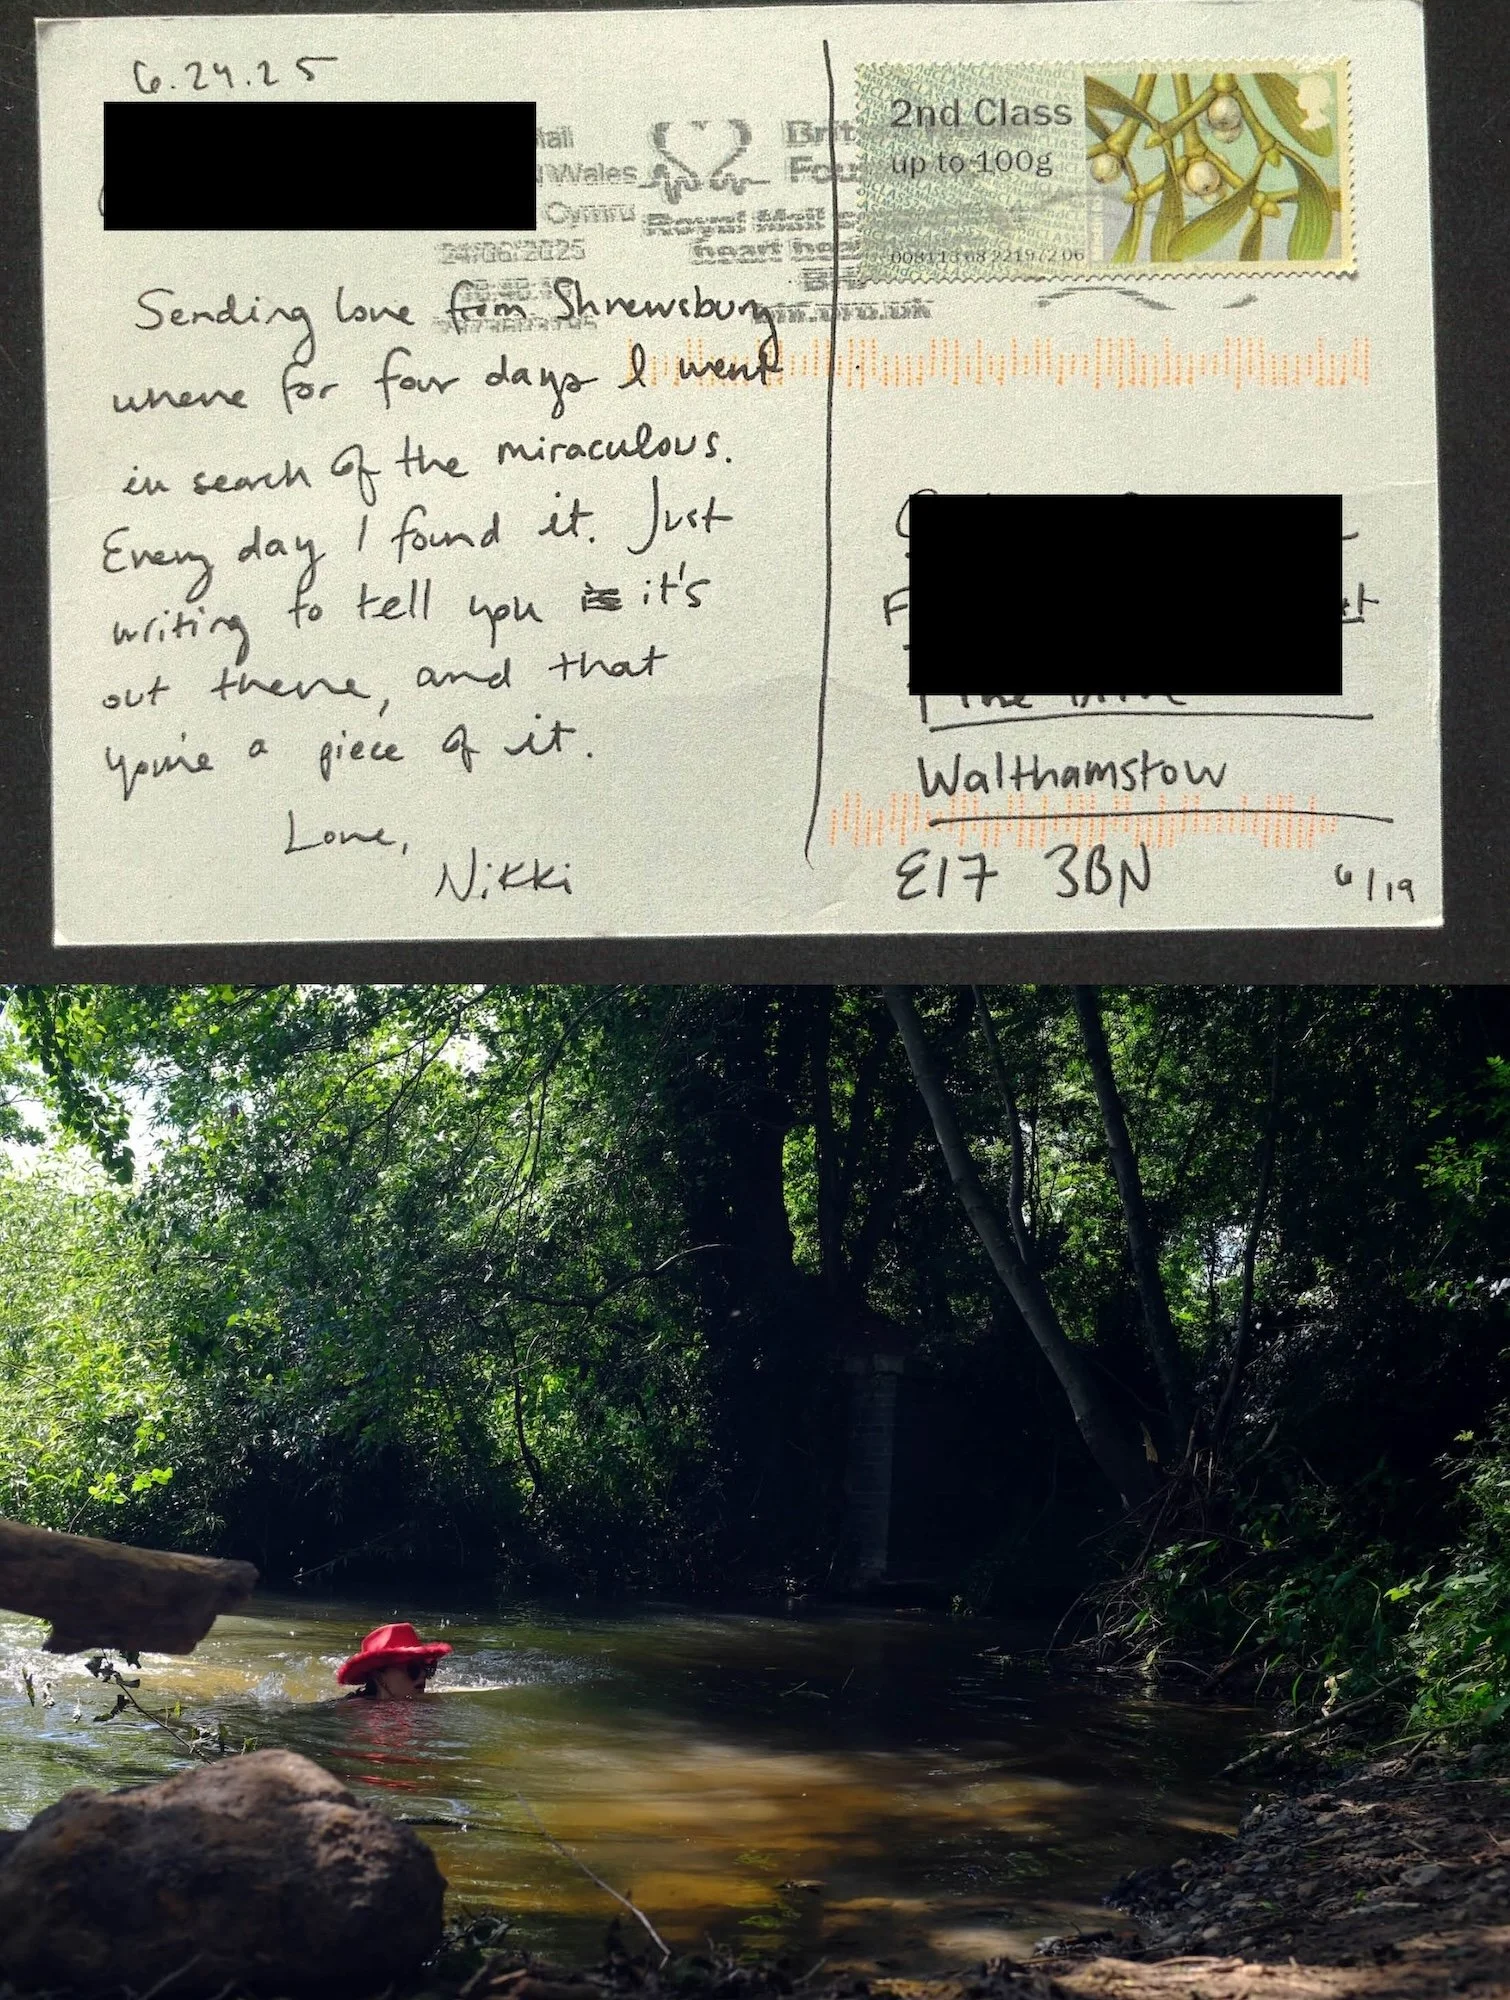 6.24.25
Wales
Cymru
24/06/2025
Royal Mail
heart
Sending love from Shrewsbury
where for four days I went
in search of the miraculous.
Every day I found it. Just
writing to tell you it's
out there, and that
you're a piece of it.
Love,
Nikki
2nd Class
up to 100g
Walthamstow
E17 3BN
6/19